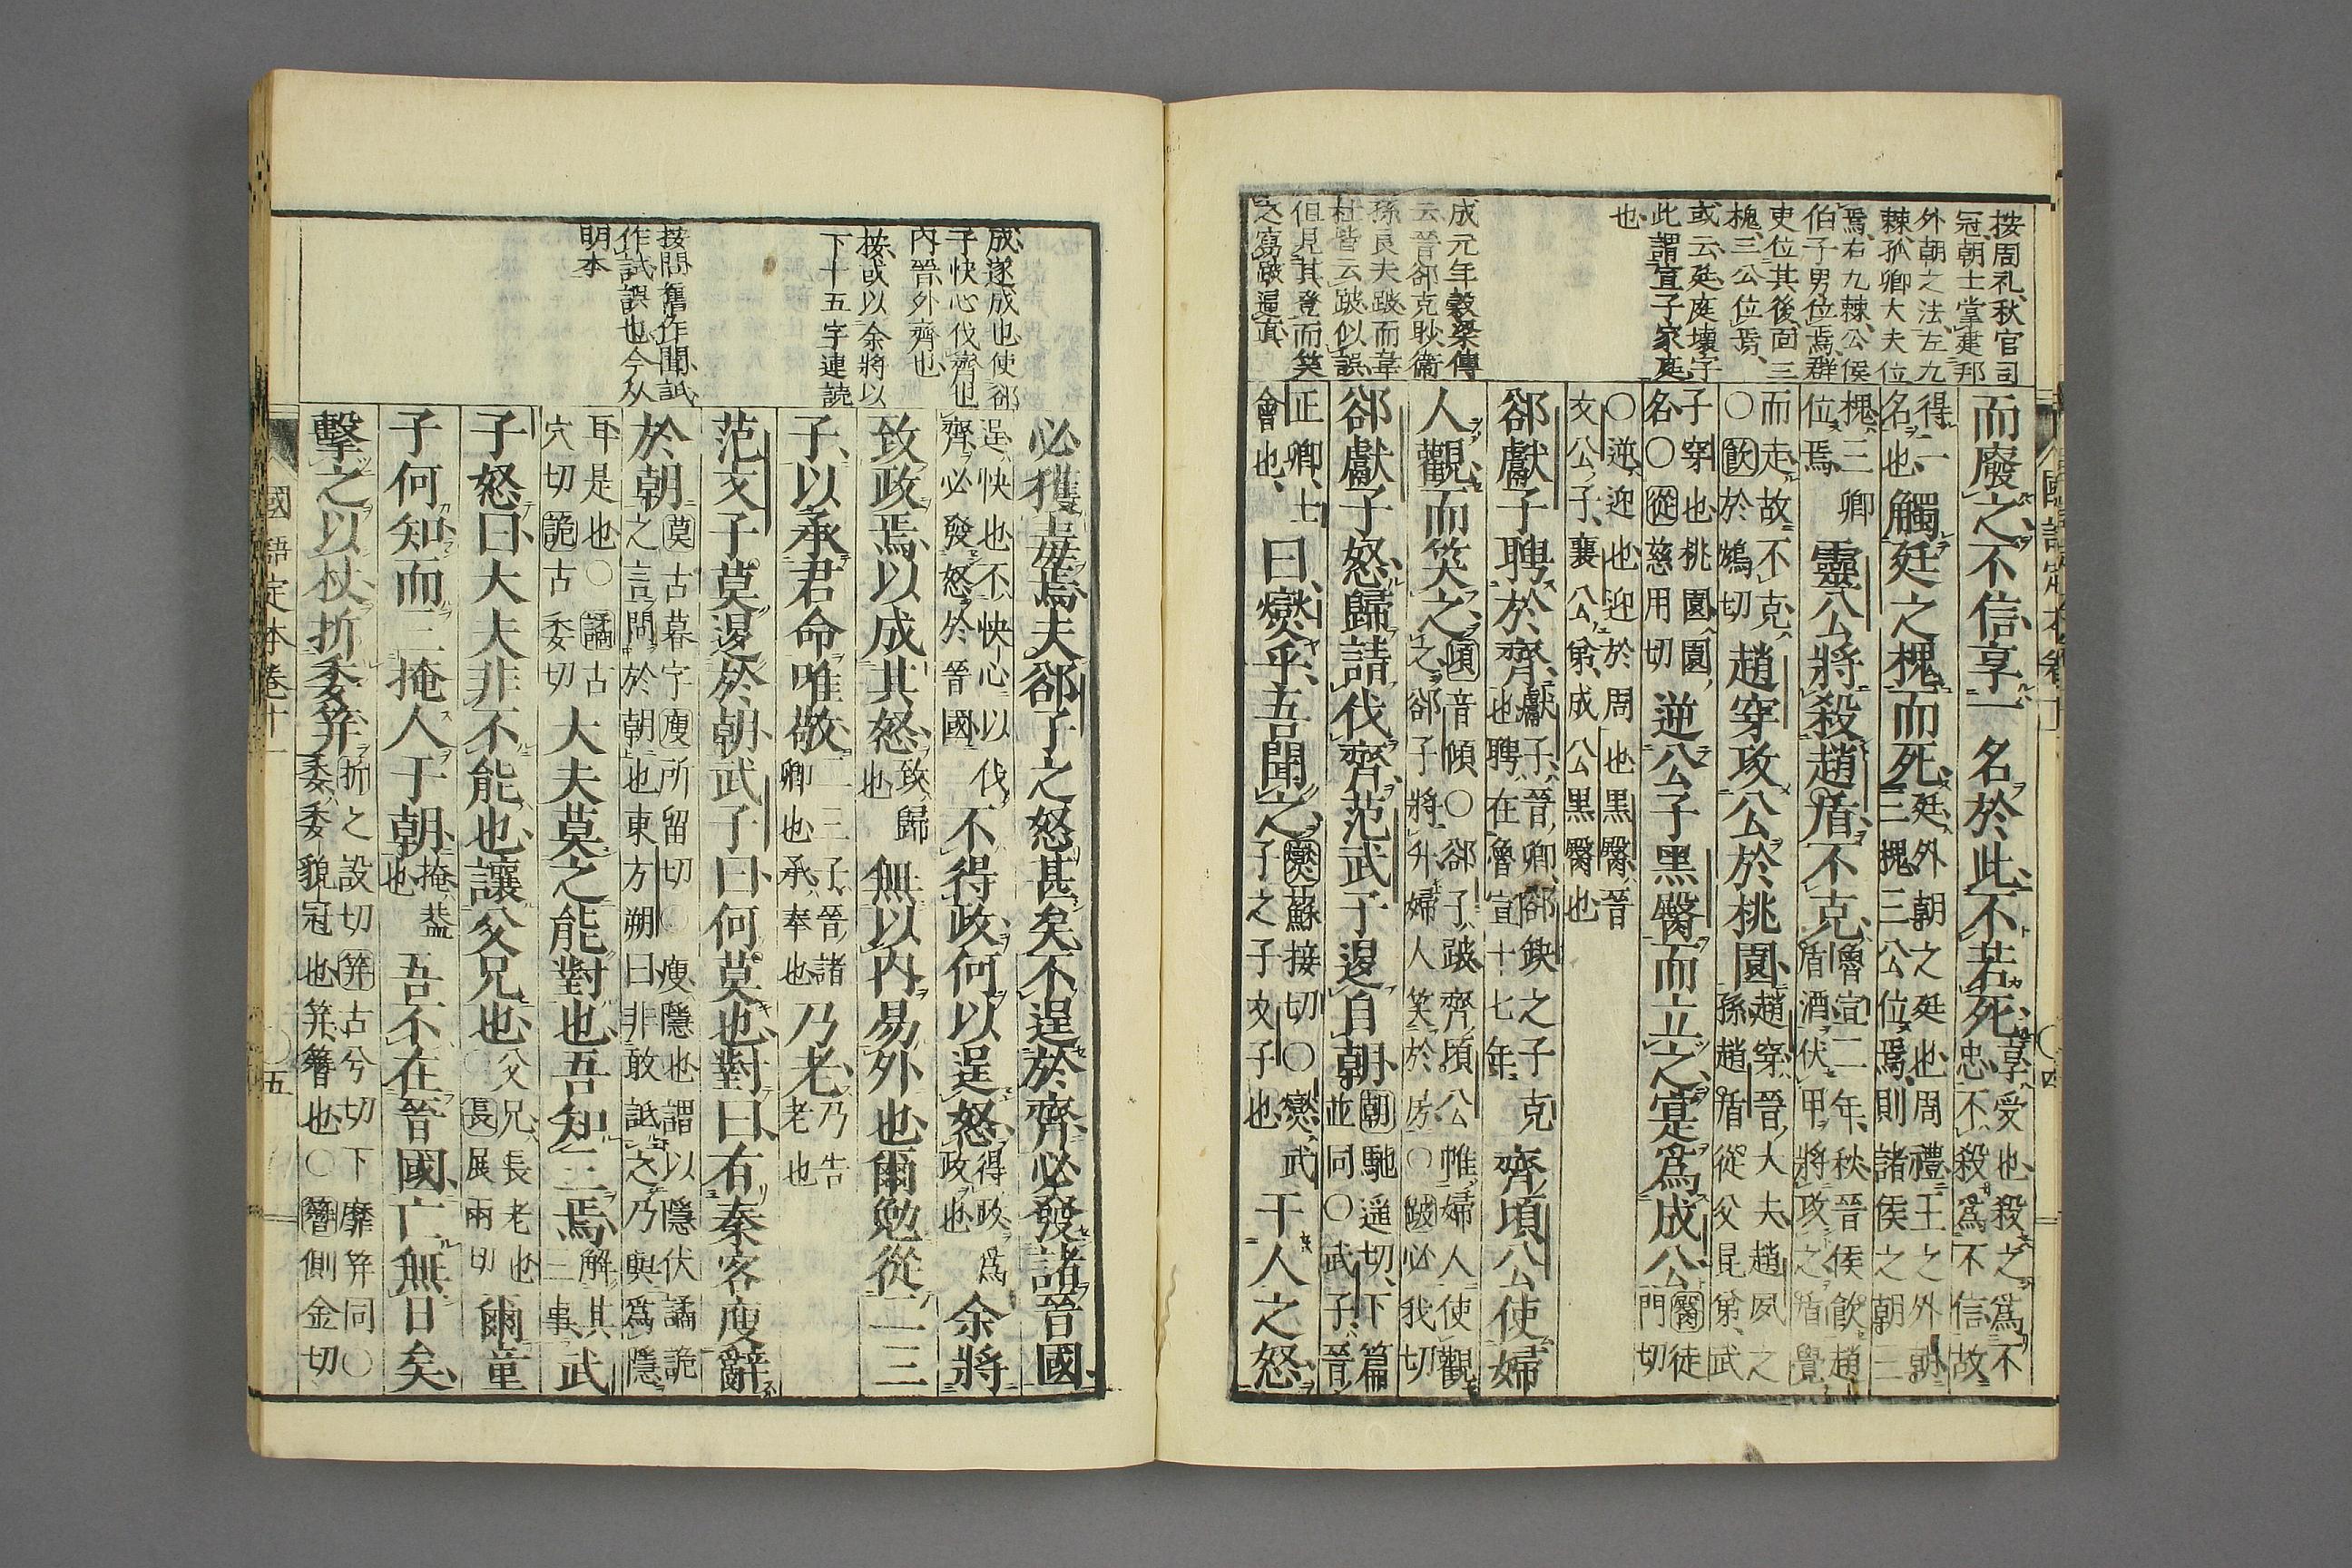 按周礼秋官司
冠朝士掌建邦
外朝之法左九
棘孤卿大夫位
焉右九棘公侯
伯子男位焉群
吏位其後面三
槐三公位焉
或云廷庭壊字
此謂宣子家庭
也
成元年穀梁傳
云晉郤克眇衞
孫良夫跛而韋
杜皆云跛似誤
但見其登而笑
之寫跛逼真
而廢之不信享一名於此不若死享受也殺之爲不忠不殺爲不信故
得一名也觸廷之槐而死廷外朝之廷也周禮王之外朝三槐三公位焉則諸侯之朝三
槐三卿位焉靈公將殺趙盾不克魯宣二年秋晉侯飲趙盾酒伏甲將攻之盾覺
而走故不克○飲於鴆切趙穿攻公於桃園趙穿晉大夫趙夙之孫趙盾從父昆弟武
子穿也桃園園名○從慈用切逆公子黑臀而立之寔爲成公臀徒門切
○逆迎也迎於周也黑臀晉文公子襄公弟成公黑臀也
郤獻子聘於齊獻子晉卿郤缺之子克也聘在魯宣十七年齊頃公使婦
人觀而笑之頃音傾○郤子跛齊頃公帷婦人使觀之郤子將升婦人笑於房○跛必我切
郤獻子怒歸請伐齊范武子退自朝朝馳遥切下篇並同○武子晉
正卿士會也曰燮乎吾聞之燮蘇接切○燮武子之子文子也干人之怒
成遂成也使郤
子快心伐齊也
内晉外齊也
按或以余將以
下十五字連読
按問舊作聞詆
作試誤也今从
明本
必獲毒焉夫郤子之怒甚矣不逞於齊必發諸晉國
逞快也不快心以伐齊必發怒於晉國不得政何以逞怒得政爲政也余將
致政焉以成其怒致歸也無以内易外也爾勉從二三
子以承君命唯敬二三子晉諸卿也承奉也乃老乃告老也
范文子莫退於朝武子曰何莫也對曰有秦客廋辭
於朝莫古暮字廋所留切○廋隱也謂以隱伏譎詭之言問於朝也東方朔曰非敢詆之乃與爲隱
耳是也○譎古穴切詭古委切大夫莫之能對也吾知三焉解其三事武
子怒曰大夫非不能也讓父兄也父兄長老也○長展兩切爾童
子何知而三掩人于朝掩蓋也吾不在晉國亡無日矣
擊之以杖折委笄折之設切笄古兮切下靡笄同○委委貌冠也笄簪也○簪側金切
國語定本卷十一
○五